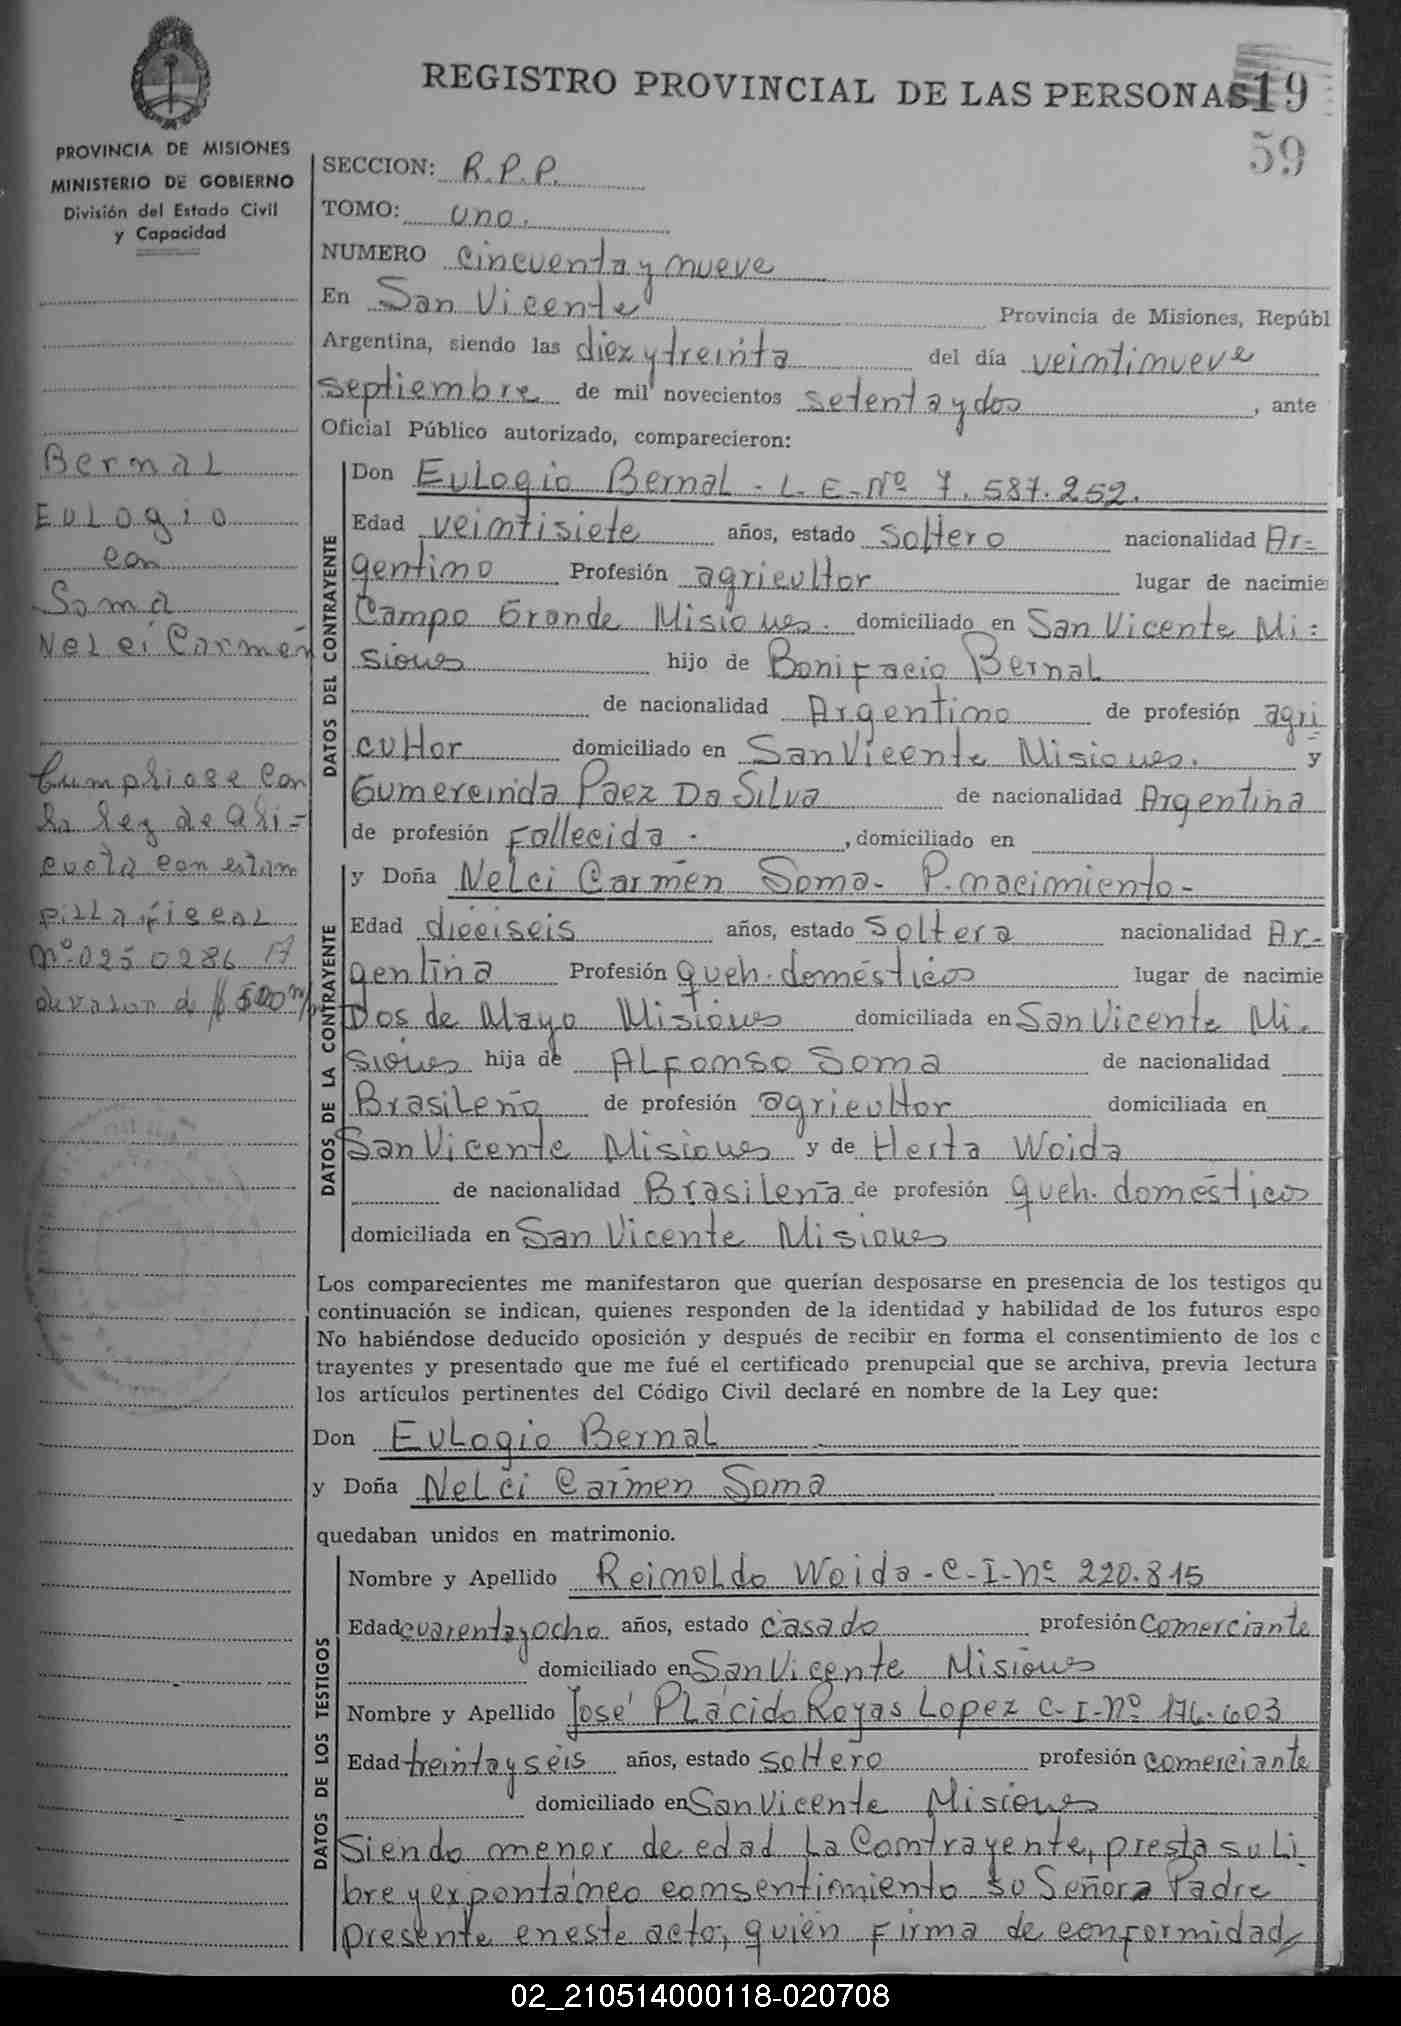 REGISTRO PROVINCIAL DE LAS PERSONAS
19
59
PROVINCIA DE MISIONES
MINISTERIO DE GOBIERNO
División del Estado Civil
y Capacidad
Bernal
Eulogio
con
Soma
Nelci Carmen
Cumpliose con
la ley de Ali=
cuota con estam
pilla fiscal
Nº 0250286 A
de valor de $ 500 m/n
SECCION: R.P.P.
TOMO: uno.
NUMERO cincuenta y nueve
En San Vicente Provincia de Misiones, Repúbl
Argentina, siendo las diez y treinta del día veintinueve
septiembre de mil novecientos setenta y dos, ante
Oficial Público autorizado, comparecieron:
DATOS DEL CONTRAYENTE
Don Eulogio Bernal - L.E-Nº 7.587.252.
Edad veintisiete años, estado soltero nacionalidad Ar=
gentino Profesión agricultor lugar de nacimie
Campo Grande Misiones. domiciliado en San Vicente Mi=
siones hijo de Bonifacio Bernal
de nacionalidad Argentino de profesión agri
cultor domiciliado en San Vicente Misiones. y
Gumercinda Paez Da Silva de nacionalidad Argentina
de profesión Fallecida. , domiciliado en
DATOS DE LA CONTRAYENTE
y Doña Nelci Carmen Soma- P. nacimiento-
Edad dieciseis años, estado soltera nacionalidad Ar-
gentina Profesión queh. domésticos lugar de nacimie
Dos de Mayo Misiones domiciliada en San Vicente Mi.
siones hija de Alfonso Soma de nacionalidad
Brasileño de profesión agricultor domiciliada en
San Vicente Misiones y de Herta Woida
de nacionalidad Brasileña de profesión queh. domésticos
domiciliada en San Vicente Misiones
Los comparecientes me manifestaron que querían desposarse en presencia de los testigos qu
continuación se indican, quienes responden de la identidad y habilidad de los futuros espo
No habiéndose deducido oposición y después de recibir en forma el consentimiento de los c
trayentes y presentado que me fué el certificado prenupcial que se archiva, previa lectura
los artículos pertinentes del Código Civil declaré en nombre de la Ley que:
Don Eulogio Bernal
y Doña Nelci Carmen Soma
quedaban unidos en matrimonio.
DATOS DE LOS TESTIGOS
Nombre y Apellido Reinoldo Woida - C-I-nº 220.815
Edad cuarenta y ocho años, estado casado profesión comerciante
domiciliado en San Vicente Misiones
Nombre y Apellido José Plácido Royas Lopez C-I-Nº 176.603
Edad treinta y seis años, estado soltero profesión comerciante
domiciliado en San Vicente Misiones
Siendo menor de edad la Contrayente, presta su li
bre y expontáneo consentimiento su Señora Padre
presente en este acto, quién firma de conformidad
02_210514000118-020708